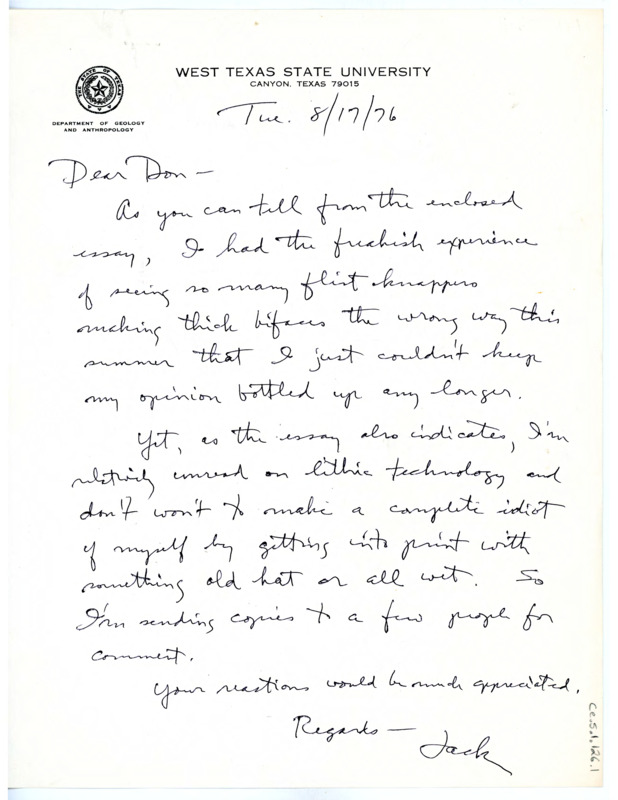 WEST TEXAS STATE UNIVERSITY
CANYON, TEXAS 79015
THE STATE OF TEXAS
DEPARTMENT OF GEOLOGY
AND ANTHROPOLOGY
Tue. 8/17/76
Dear Don —
As you can tell from the enclosed
essay, I had the freakish experience
of seeing so many flint knappers
making thick bifaces the wrong way this
summer that I just couldn't keep
my opinion bottled up any longer.
Yet, as the essay also indicates, I'm
relatively unread on lithic technology and
don't won't to make a complete idiot
of myself by getting into print with
something old hat or all wet. So
I'm sending copies to a few people for
comment.
Your reactions would be much appreciated.
Regards —
Jack
Ce.5.d.126.1